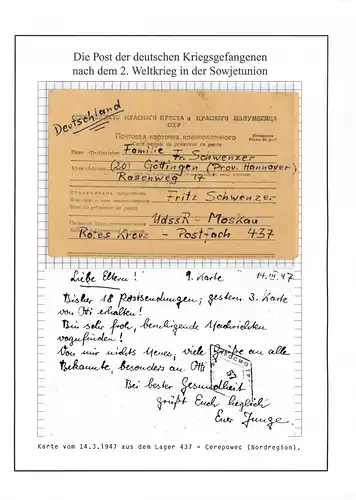 Die Post der deutschen Kriegsgefangenen
nach dem 2. Weltkrieg in der Sowjetunion
Deutschland
КРАСНОГО КРЕСТА и КРАСНОГО ПОЛУМЕСЯЦА
СССР
Почтовая карточка военнопленного
Carte postale du prisonnier de guerre
Кому (Destinataire) Familie
Fr. Schwenzer
Куда (Adresse) (20) Göttingen (Prov. Hannover)
Rasenweg 17
Отправитель
Fritz Schwenzer
Nom du prisonnier de guerre
UdSSR - Moskau
Rotes Kreuz - Postfach 437
Liebe Eltern! 9. Karte 14.III.47
Bisher 18 Postsendungen; gestern 3. Karte
von Otti erhalten!
Bin sehr froh, beruhigende Nachrichten
vorzufinden!
Von mir nichts Neues, viele Grüße an alle
Bekannte, besonders an Otti
Bei bester Gesundheit
grüßt Euch herzlich
Euer Junge.
Karte vom 14.3.1947 aus dem Lager 437 - Cerepowec (Nordregion).